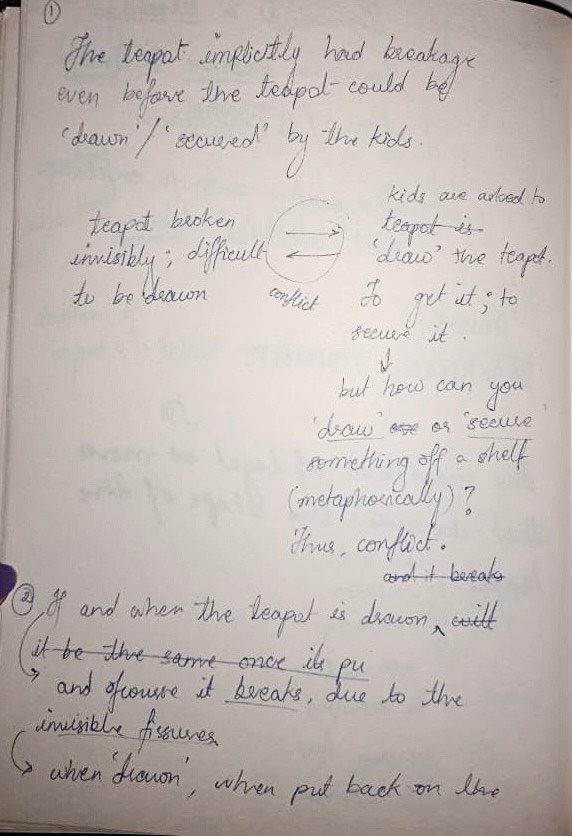 ①
The teapot implicitly had breakage
even before the teapot could be
'drawn' / 'secured' by the kids.
teapot broken
invisibly; difficult
to be drawn
conflict
kids are asked to
teapot is
'draw' the teapot.
To get it; to
secure it.
↓
but how can you
'draw' or 'secure'
something off a shelf
(metaphorically)?
Thus, conflict.
and it breaks
② If and when the teapot is drawn, will
it be the same once its pu
→ and ofcourse it breaks, due to the
invisible fissures
→ when 'drawn', when put back on the